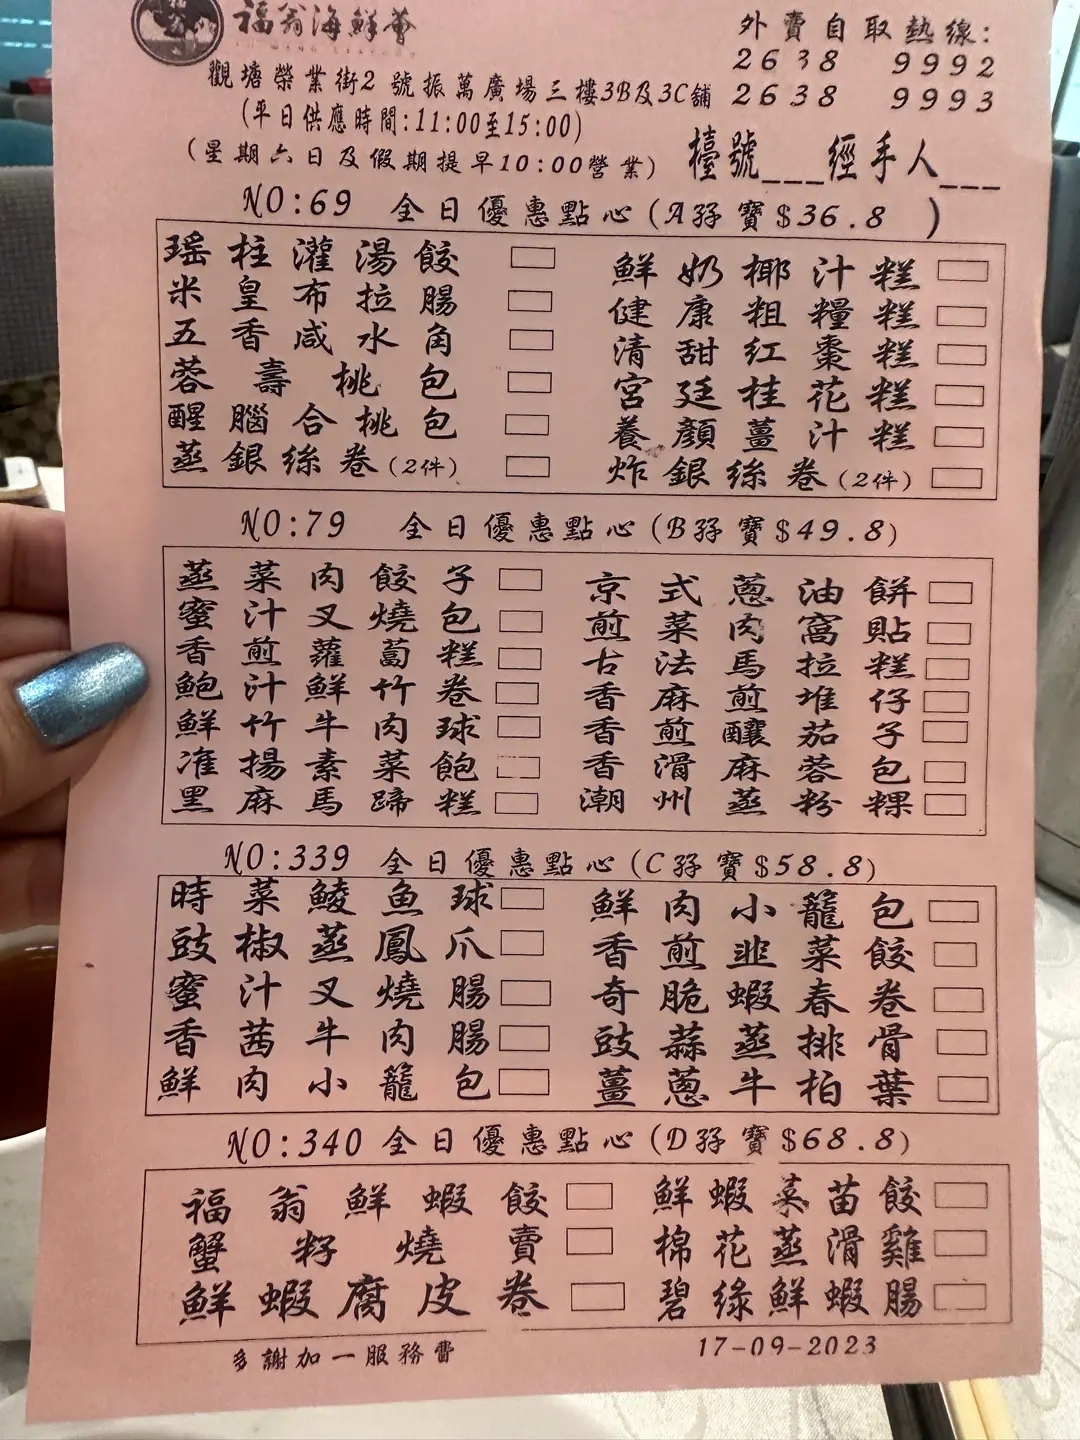 福翁海鮮薈
外賣自取熱線:
2638 9992
2638 9993
觀塘榮業街2號振萬廣場三樓3B及3C舖
(平日供應時間:11:00至15:00)
(星期六日及假期提早10:00營業)
檯號___經手人___
NO:69 全日優惠點心(A孖寶$36.8 )
瑶柱灌湯餃
米皇布拉腸
五香咸水角
蓉壽桃包
醒腦合桃包
蒸銀絲卷(2件)
鮮奶椰汁糕
健康粗糧糕
清甜紅棗糕
宮廷桂花糕
養顏薑汁糕
炸銀絲卷(2件)
NO:79 全日優惠點心(B孖寶$49.8)
蒸菜肉餃子
蜜汁叉燒包
香煎蘿蔔糕
鮑汁鮮竹卷
鮮竹牛肉球
准揚素菜飽
黑麻馬蹄糕
京式蔥油餅
煎菜肉窩貼
古法馬拉糕
香麻煎堆仔
香煎釀茄子
香滑麻蓉包
潮州蒸粉粿
NO:339 全日優惠點心(C孖寶$58.8)
時菜鯪魚球
豉椒蒸鳳爪
蜜汁叉燒腸
香茜牛肉腸
鮮肉小籠包
鮮肉小籠包
香煎韭菜餃
奇脆蝦春卷
豉蒜蒸排骨
薑蔥牛柏葉
NO:340 全日優惠點心(D孖寶$68.8)
福翁鮮蝦餃
蟹籽燒賣
鮮蝦腐皮卷
鮮蝦菜苗餃
棉花蒸滑雞
碧綠鮮蝦腸
多謝加一服務費
17-09-2023